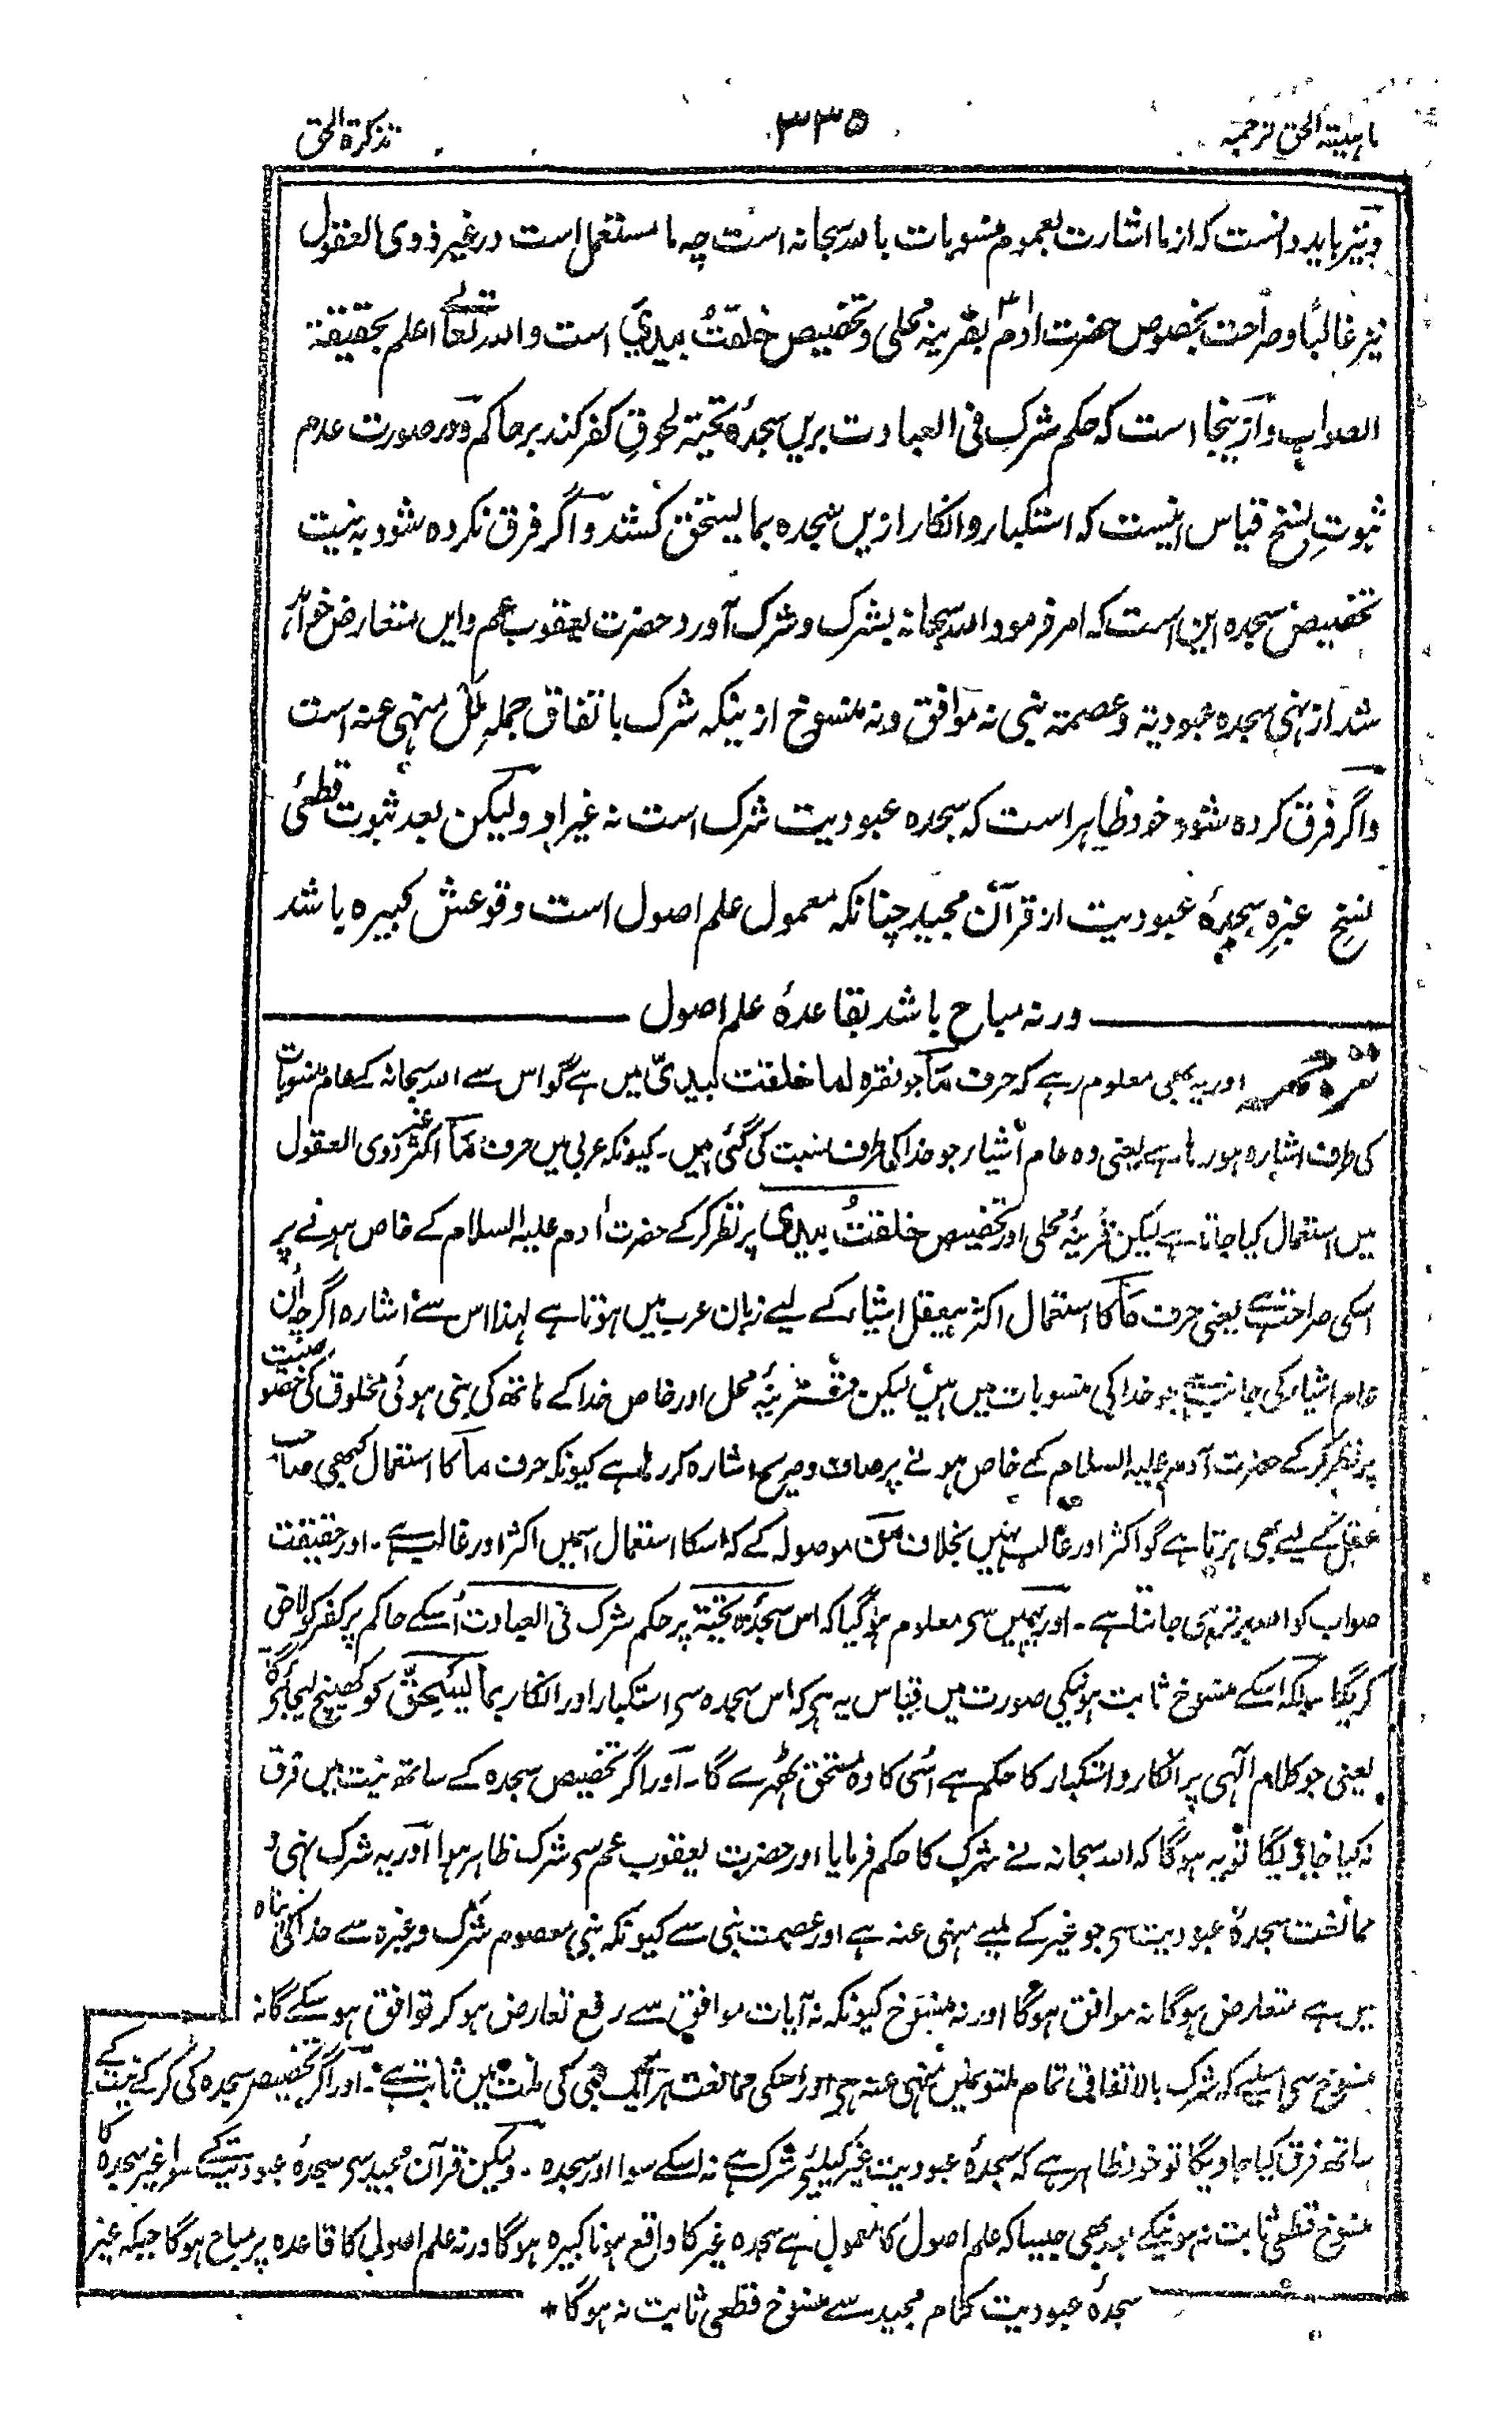 ماہیتہ الحق ترجمہ ۳۳۵ تذکرۃ الحق
ونیز باید دانست کہ از ما اشارت بعموم منسوبات باللہ سبحانہ است چہ ما مستعمل است در غیر ذوی العقول
نیز غالبًا و صراحت بخصوص حضرت ادمؑ بقرینہ محلی و تخصیص خلقتُ بیدیَّ است واللہ تعالے اعلم بحقیقۃ
الصواب و ازینجا است کہ حکم شرک فی العبادت بریں سجدۂ تحیتہ لحوقِ کفر کند بر حاکم و در صورت عدم
ثبوتِ نسخ قیاس اینست کہ استکبار و انکار ازیں سجدہ بما یستحق کشد و اگر فرق نکردہ شود بہ نیت
تخصیص سجدہ این است کہ امر فرمود اللہ سبحانہ بشرک و شرک آورد حضرت یعقوب عم و ایں متعارض خواہد
شد از نہی سجدہ عبودیتہ و عصمتہ نبی نہ موافق و نہ منسوخ از ینکہ شرک باتفاق جملہ ملل منہی عنہ است
و اگر فرق کردہ شود خود ظاہر است کہ سجدہ عبودیت شرک است نہ غیر او ولیکن بعد ثبوت قطعئ
نسخِ غیرِ سجدۂ عبودیت از قرآن مجید چنانکہ معمول علم اصول است وقوعش کبیرہ باشد
ورنہ مباح باشد بقاعدۂ علم اصول
اور یہ بھی معلوم رہے کہ حرف مَا جو فقرہ لما خلقت بیدیّ میں ہے گو اس سے اللہ سبحانہ کے عام منسوبات
کی طرف اشارہ ہو رہا ہے یعنی وہ عام اشیار جو خدا کی طرف نسبت کی گئی ہیں۔ کیونکہ عربی میں حرف مَا اکثر غیر ذوی العقول
میں استعمال کیا جاتا ہے لیکن قرینۂ محلی اور تخصیص خلقتُ بیدی پر نظر کرکے حضرت اٰدم علیہ السلام کے خاص ہونے پر
اسکی صراحت ہے یعنی حرف مَا کا استعمال اکثر بیعقل اشیار کے لیے زبان عرب میں ہوتا ہے لہذا اس سے اشارہ اگرچہ اُن
عام اشیار کی جانب ہے جو خدا کی منسوبات میں ہیں لیکن قرینۂ محل اور خاص خدا کے ہاتھ کی بنی ہوئی مخلوق کی خصوصیت
پر نظر کرکے حضرت آدم علیہ السلام کے خاص ہونے پر صاف و صریح اشارہ کر رہا ہے کیونکہ حرف مَا کا استعمال کبھی صاحب
عقل کے لیے بھی ہوتا ہے گو اکثر اور غالب نہیں بخلاف مَن موصولہ کے کہ اسکا استعمال اسمیں اکثر اور غالب ہے۔ اور حقیقت
صواب کو اللہ برتر ہی جانتا ہے۔ اور یہیں سی معلوم ہو گیا کہ اس سجدۂ تحیتہ پر حکم شرک فی العبادت اُسکے حاکم پر کفر کو لاحق
کریگا بلکہ اسکے منسوخ ثابت ہونیکی صورت میں قیاس یہ ہی کہ اس سجدہ سی استکبار اور انکار بما یستحقّ کو کھینچ لیجائیگا
یعنی جو کلام الٰہی پر انکار و استکبار کا حکم ہے اُسی کا وہ مستحق ٹھہرے گا۔ اور اگر تخصیص سجدہ کے ساتھ نیت میں فرق
نہ کیا جاویگا تو یہ ہوگا کہ اللہ سبحانہ نے شرک کا حکم فرمایا اور حضرت یعقوب عم سی شرک ظاہر ہوا اور یہ شرک نہی و
ممانعت سجدۂ عبودیت سی جو غیر کے لیے منہی عنہ ہے اور عصمت نبی سے کیونکہ نبی معصوم شرک وغیرہ سے خدا کی پناہ
میں ہے متعارض ہوگا نہ موافق ہوگا اور نہ منسوخ کیونکہ نہ آیات موافق سے رفع تعارض ہو کر توافق ہو سکے گا نہ
منسوخ سی اسلیے کہ شرک بالاتفاق تمام ملتوں میں منہی عنہ ہی اور اسکی ممانعت ہر ایک نبی کی ملت میں ثابت ہے۔ اور اگر تخصیص سجدہ کی کرکے نیت کے
ساتھ فرق کیا جاویگا تو خود ظاہر ہے کہ سجدۂ عبودیت غیر کیلئے شرک ہے نہ اسکے سوا اور سجدہ۔ ولیکن قرآن مجید سی سجدۂ عبودیت کے سوا غیر سجدہ کا
منسوخ قطعی ثابت نہ ہونیکے بعد بھی جیسا کہ علم اصول کا معمول ہے سجدہ غیر کا واقع ہونا کبیرہ ہوگا ورنہ علم اصول کا قاعدہ پر مباح ہوگا جبکہ غیر
سجدۂ عبودیت کلام مجید سے منسوخ قطعی ثابت نہ ہوگا *